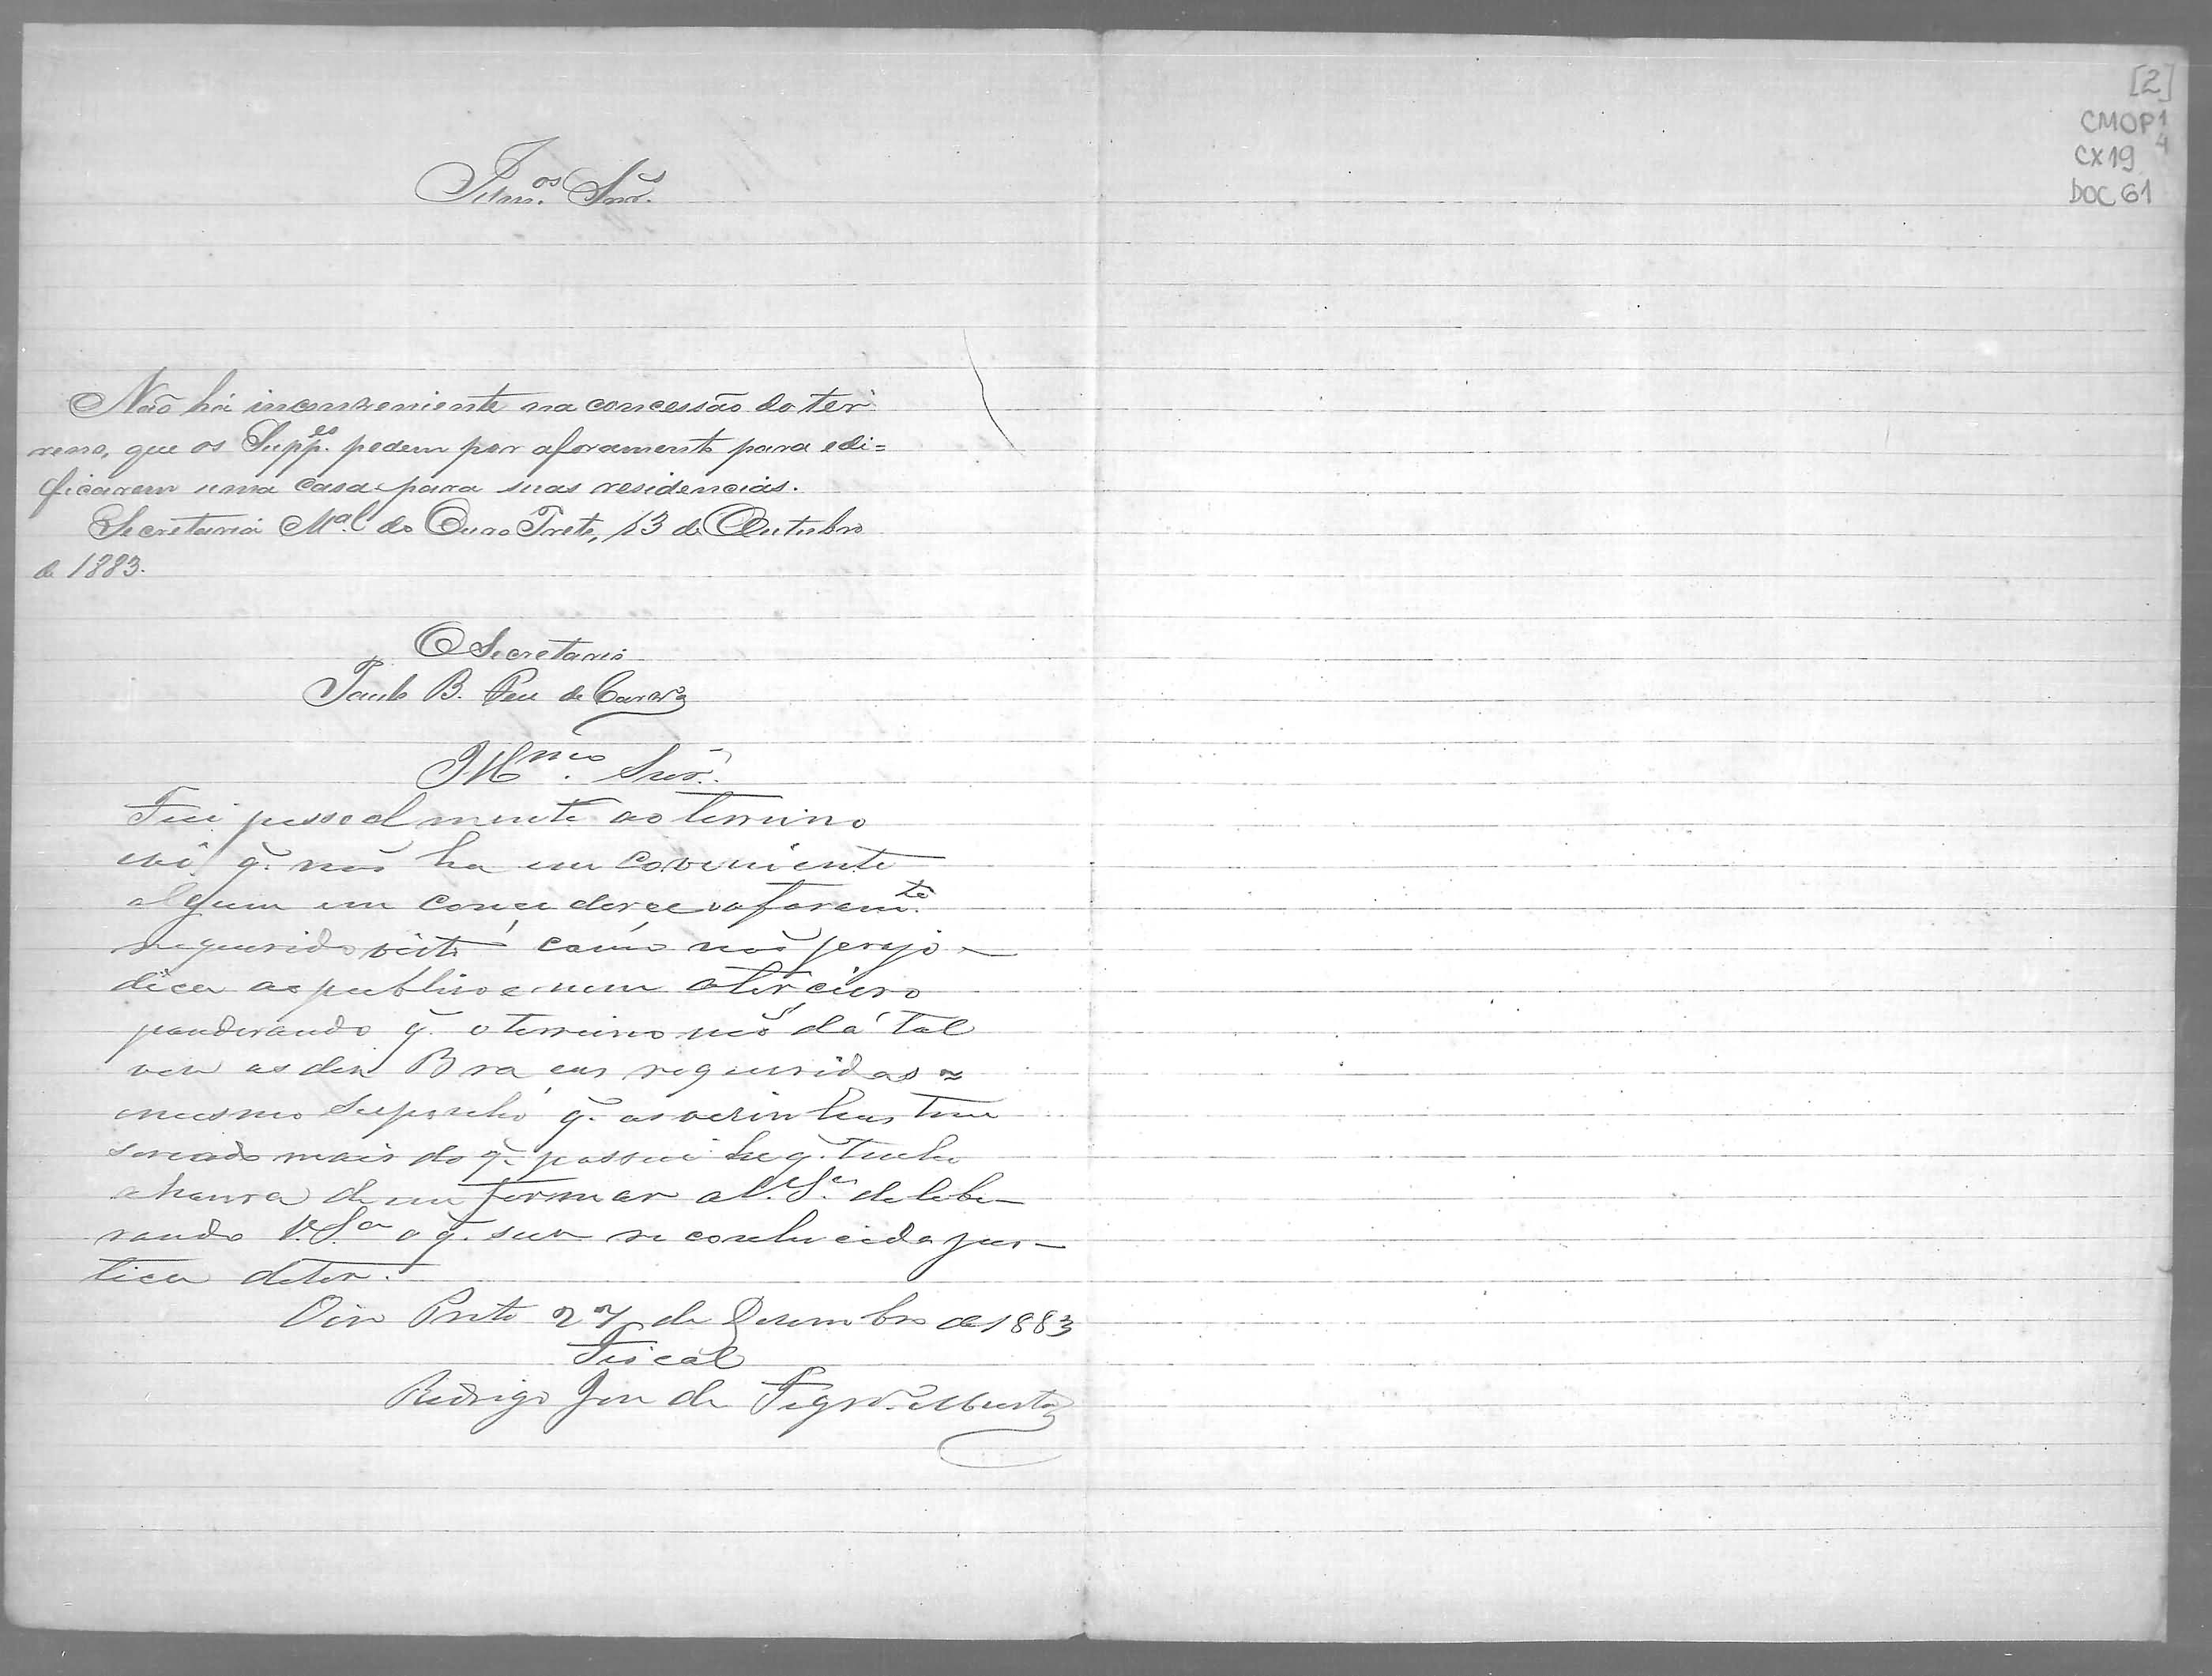 [2]
CMOP 1
4
CX19
DOC 61
Illmos. Snrs.
Não há inconveniente na concessão do ter
reno, que os Suppes. pedem por aforamento para edi=
ficarem uma casa para suas residencias.
Secretaria Mal. do Ouro Preto, 13 de Outubro
de 1883.
O Secretario
Paulo B.
Illmo. Snr.
Fui pessoalmente ao terreino
e vi q. não ha em coveniente
algum em concederce o aforamto.
requerido visto como não perjo-
dica ao publico e nem a terceiro
ponderando q. o terreino não dá tal
vez as dez Braças requeridas e
mesmo suponho q. as vezinhas tem
sercado mais do q. possui he q. tenho
a honra de em formar a V. Sa. delebe-
rando V. Sa. o q. sua reconhecida jus-
tica deter.
Oiro Preto 27 de Dezembro de 1883
Fiscal
Rodrigo José de Figrdo. Murta